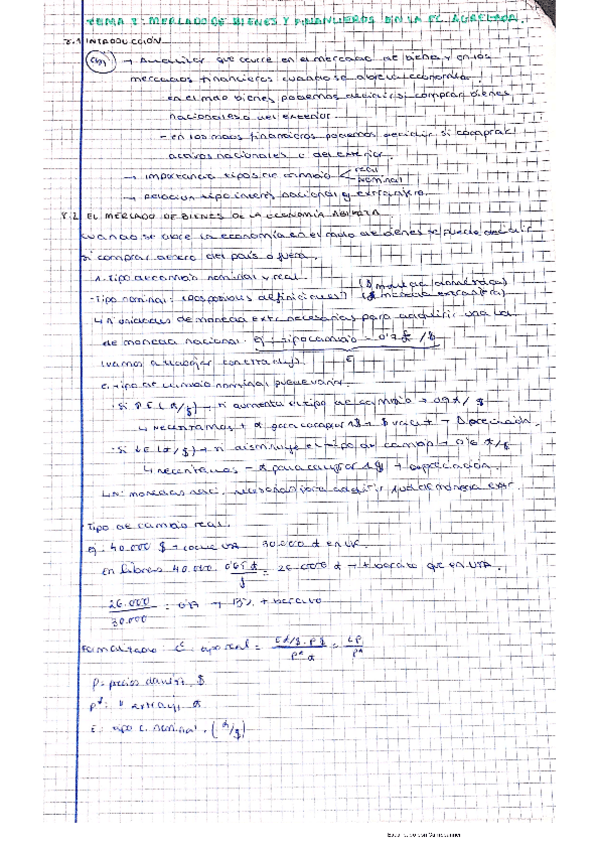 TEMA 2: MERCADO DE BIENES Y FINANCIEROS EN LA EC. AGREGADA.
2.1 INTRODUCCIÓN
→ Analizar que ocurre en el mercado de bienes y en los
mercados financieros cuando se abre la economía.
en el mdo bienes podemos decidir si comprar bienes
nacionales o del exterior.
- en los mdos financieros podemos decidir si comprar
activos nacionales o del exterior.
→ importancia tipos de cambio < real
nominal
→ relación tipo interés nacional y extranjero.
2.2 EL MERCADO DE BIENES DE LA ECONOMÍA ABIERTA
cuando se abre la economía en el mdo de bienes se puede decidir
si comprar dentro del país o fuera.
1. Tipo de cambio nominal y real.
- Tipo nominal: dos posibles definiciones
↳ nº unidades de moneda extr necesarias para adquirir una ud
de moneda nacional. ej: tipo cambio = 0'7 £/$
vamos a trabajar con
El tipo de cambio nominal puede variar.
· Si ↑E (£/$) → si aumenta el tipo de cambio → 0'9 £/$
↳ necesitamos + £ para comprar 1$ → $ vale + → Apreciación.
· Si ↓E (£/$) → si disminuye el tipo de cambio → 0'6 £/$
↳ necesitamos - £ para comprar 1$ → depreciación.
↳ nº monedas nac. necesarias para adquirir 1 ud de moneda extr.
Tipo de cambio real.
ej: 40.000 $ → coche USA 30.000 £ en UK.
en libras 40.000 · 0'65 £/$ = 26.000 £ → + barato que en USA.
26.000/30.000 = 0'87 → 13% + barato
Formalizado E tipo real = E £/$ · P$ / P* £ = EP/P*
P = precios dentro, $
P* = " extranj, £
E: tipo c. nominal. (£/$)